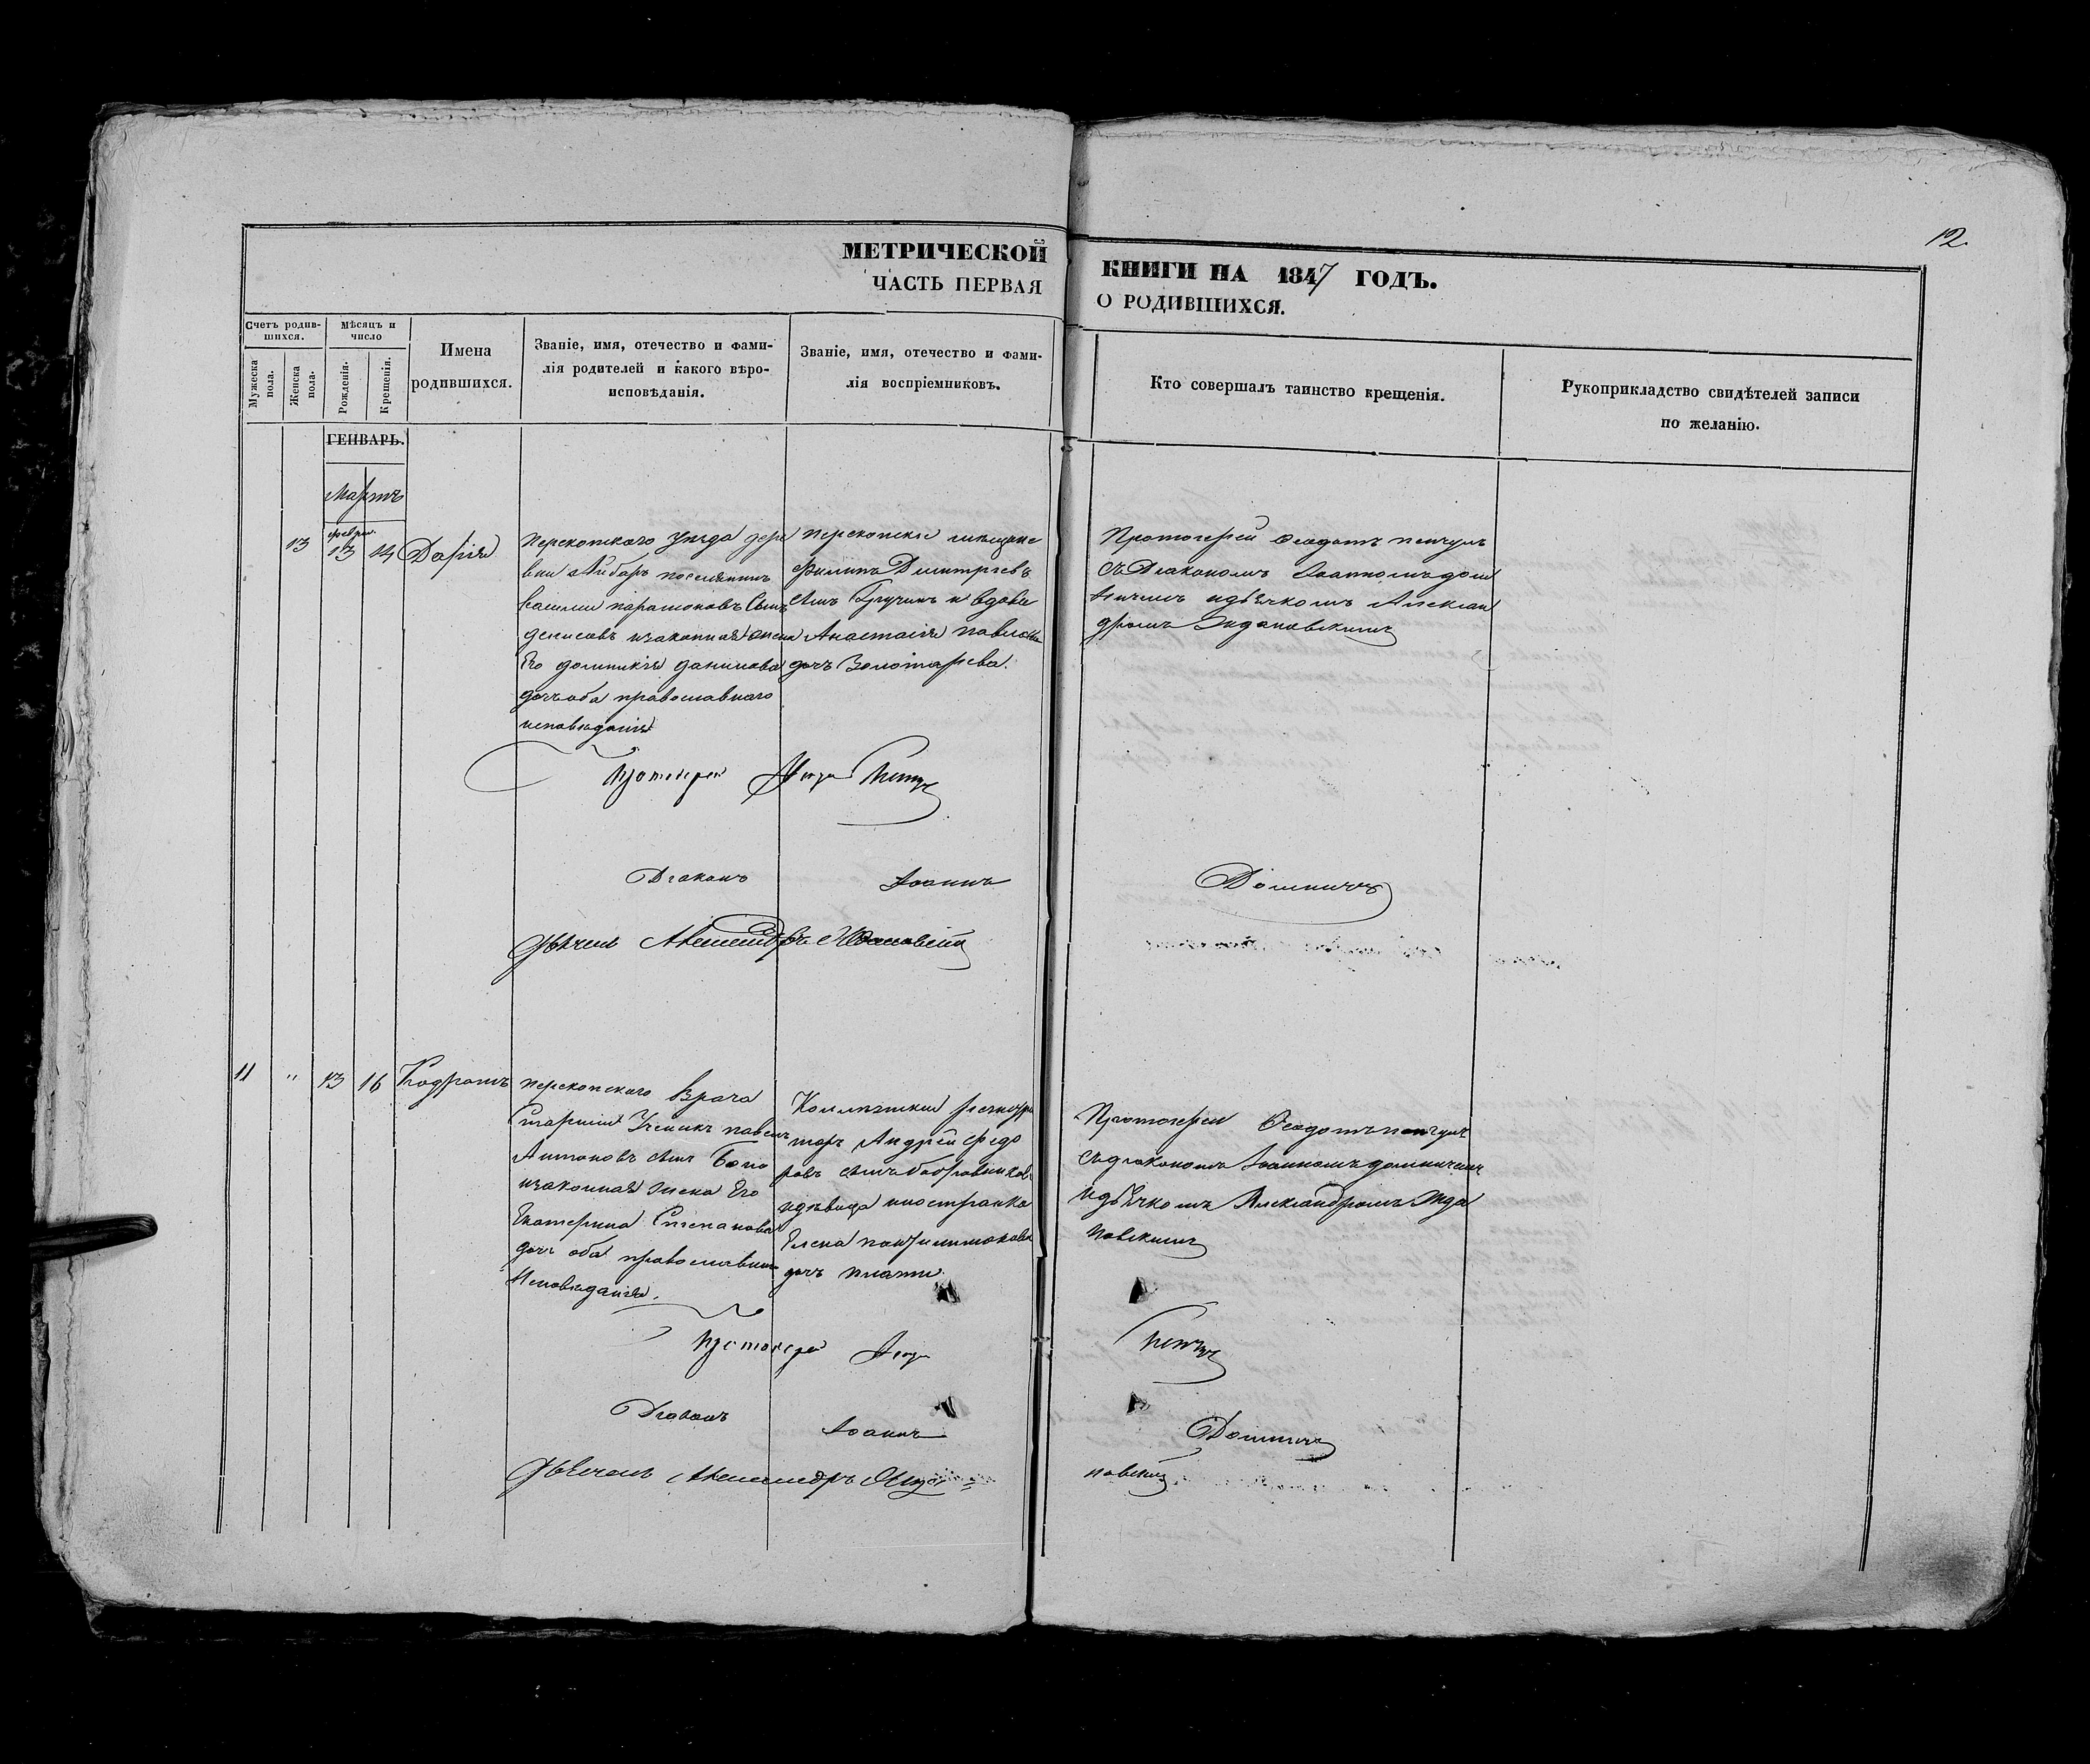 12.
МЕТРИЧЕСКОЙ КНИГИ НА 1847 ГОДЪ.
ЧАСТЬ ПЕРВАЯ О РОДИВШИХСЯ.
Счетъ родив-
шихся.
Мужеска
пола.
Женска
пола.
Мѣсяцъ и
число
Рожденія.
Крещенія.
Имена
родившихся.
Званіе, имя, отечество и фами-
лія родителей и какого вѣро-
исповѣданія.
Званіе, имя, отечество и фами-
лія воспріемниковъ.
Кто совершалъ таинство крещенія.
Рукоприкладство свидѣтелей записи
по желанію.
ГЕНВАРЬ.
Мартъ
феврал.
13 13 14 Дарія
Перекопского уѣзда дере
вни Айбаръ поселянинъ
василій парамоновъ сынъ
денисовъ изаконная жена
Его домникія данилова
дочь оба православнаго
исповѣданія
перекопскіе мещане
Филипъ Димитріевъ
сынъ и вдова
Анастасія павлова
дочь Золотарева.
Протоіерей Феодотъ
съ Діакономъ Іоанномъ дом
ничемъ идьячкомъ Алексан
дромъ Ждановскимъ
Протоіерей
Діаконъ Іоаннъ Домничъ
Дьячекъ Александръ Ждановскій
11 " 13 16 Кодратъ
перекопского Врача
Старшій Ученикъ павелъ
Антоновъ сынъ
изаконная жена Его
Екатерина Степанова
дочь оба православнаго
Исповѣданія.
Коллежскій регистра
торъ Андрей Федо
ровъ сынъ Бобровников
идѣвица иностранка
Елена
дочь
Протоіерей Феодотъ
съдіакономъ Іоанномъ домничемъ
идьячкомъ Александромъ Жда
новскимъ
Протоіерей
Діаконъ Іоаннъ Домничъ
Дьячекъ Александръ Жда
новскій